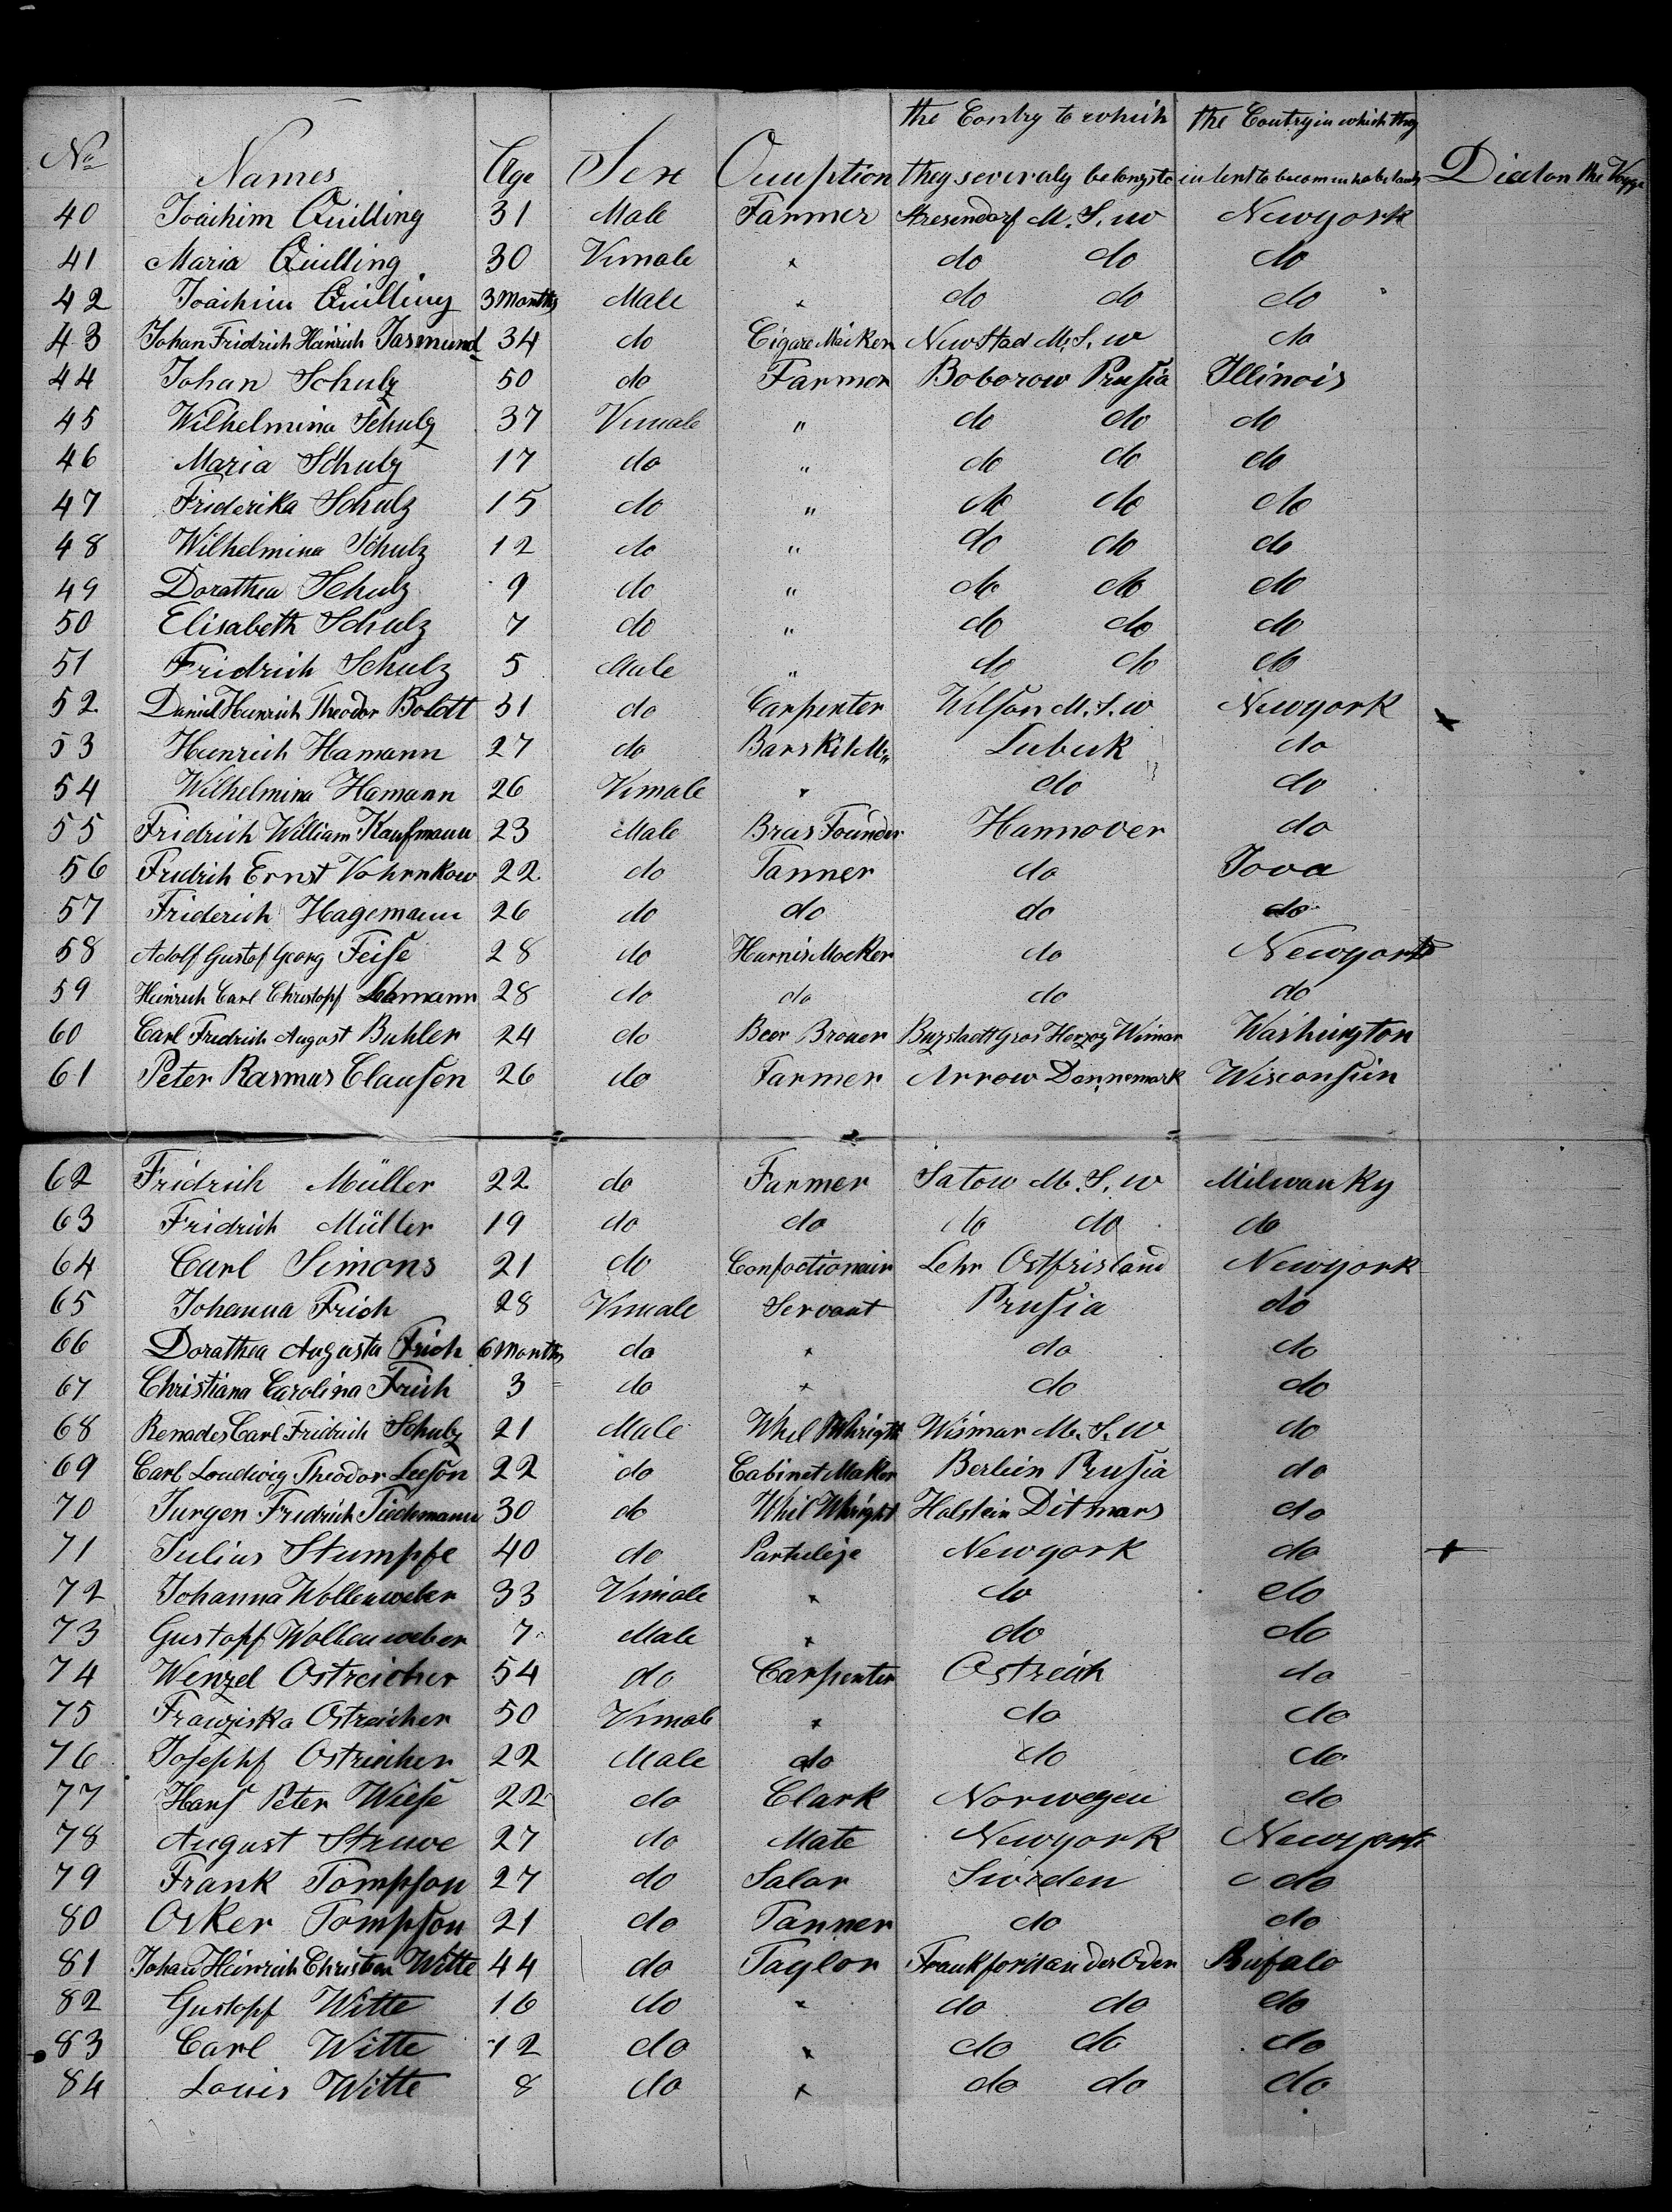 the Contry to which the Coutry in which they
No Names Age Sex Ocuuption they severaly belongs to in tent to becom inhabetands Died on the Voyge
40 Joäihim Quilling 31 Male Farmer Stresendorf M. S. w Newyork
41 Maria Quilling 30 Vimale × do do do
42 Joäihim Quilling 3 Months Male × do do do
43 Johan Fridrich Heinrich Jasmund 34 do Cigare Maiker New Stad M. S. w do
44 Johan Schulz 50 do Farmer Boborow Prusia Illinois
45 Wilhelmina Schulz 37 Vimale " do do do
46 Maria Schulz 17 do " do do do
47 Friderika Schulz 15 do " do do do
48 Wilhelmina Schulz 12 do " do do do
49 Dorathea Schulz 9 do " do do do
50 Elisabeth Schulz 7 do " do do do
51 Fridrich Schulz 5 Male " do do do
52 Daniel Heinrich Theodor Bolett 31 do Carpenter Wilson M. S. w Newyork ×
53 Heinrich Hamann 27 do Lubuk do
54 Wilhelmina Hamann 26 Vimale × do do
55 Fridrich William Kaufmann 23 Male Bras Founder Hannover do
56 Fridrih Ernst Vohrnkow 22 do Tanner do Iova
57 Friderich Hagemann 26 do do do do
58 Adolf Gustof Georg Feise 28 do Harnis Mocker do Newyork
59 Heinrich Carl Christopf Lehmann 28 do do do do
60 Carl Fridrich August Buhler 24 do Beer Brouer Buzstaett Gros Herzog Wimar Washington
61 Peter Rasmus Clausen 26 do Farmer Arrow Dennemark Wisconsuin
62 Fridrich Müller 22 do Farmer Satow M. S. w Milwauky
63 Fridrich Müller 19 do do do do do
64 Carl Simons 21 do Confoctionair Lehr Ostfrisland Newyork
65 Johanna Frich 28 Vimale Servant Prusia do
66 Dorathea Augusta Frich 6 Months do × do do
67 Christiana Carolina Frich 3 do × do do
68 Carl Fridrich Schulz 21 Male Whel Whrigth Wismar M. S. W do
69 Carl Loudwig Theodor Leeson 22 do Cabinet Maker Berlein Prusia do
70 Jurgen Fridrich Tiedemann 30 do Whil Whright Holstein Ditmars do
71 Julius Stumpfe 40 do Newyork do +
72 Johanna Wollenweber 33 Vimale × do do
73 Gustopf Wollenweber 7 Male × do do
74 Wenzel Ostreicher 54 do Carpenter Ostreich do
75 Franziska Ostreicher 50 Vimale × do do
76 Josephf Ostreicher 22 Male do do do
77 Hans Peter Wiese 22 do Clark Norwegen do
78 August Struve 27 do Mate Newyork Newyork
79 Frank Tompson 27 do Salor Sweden do
80 Osker Tompson 21 do Tanner do do
81 Johan Heinrich Christian Witte 44 do Taylor Frankfort an der Oder Bufalo
82 Gustopf Witte 16 do × do do do
83 Carl Witte 12 do × do do do
84 Louis Witte 8 do × do do do